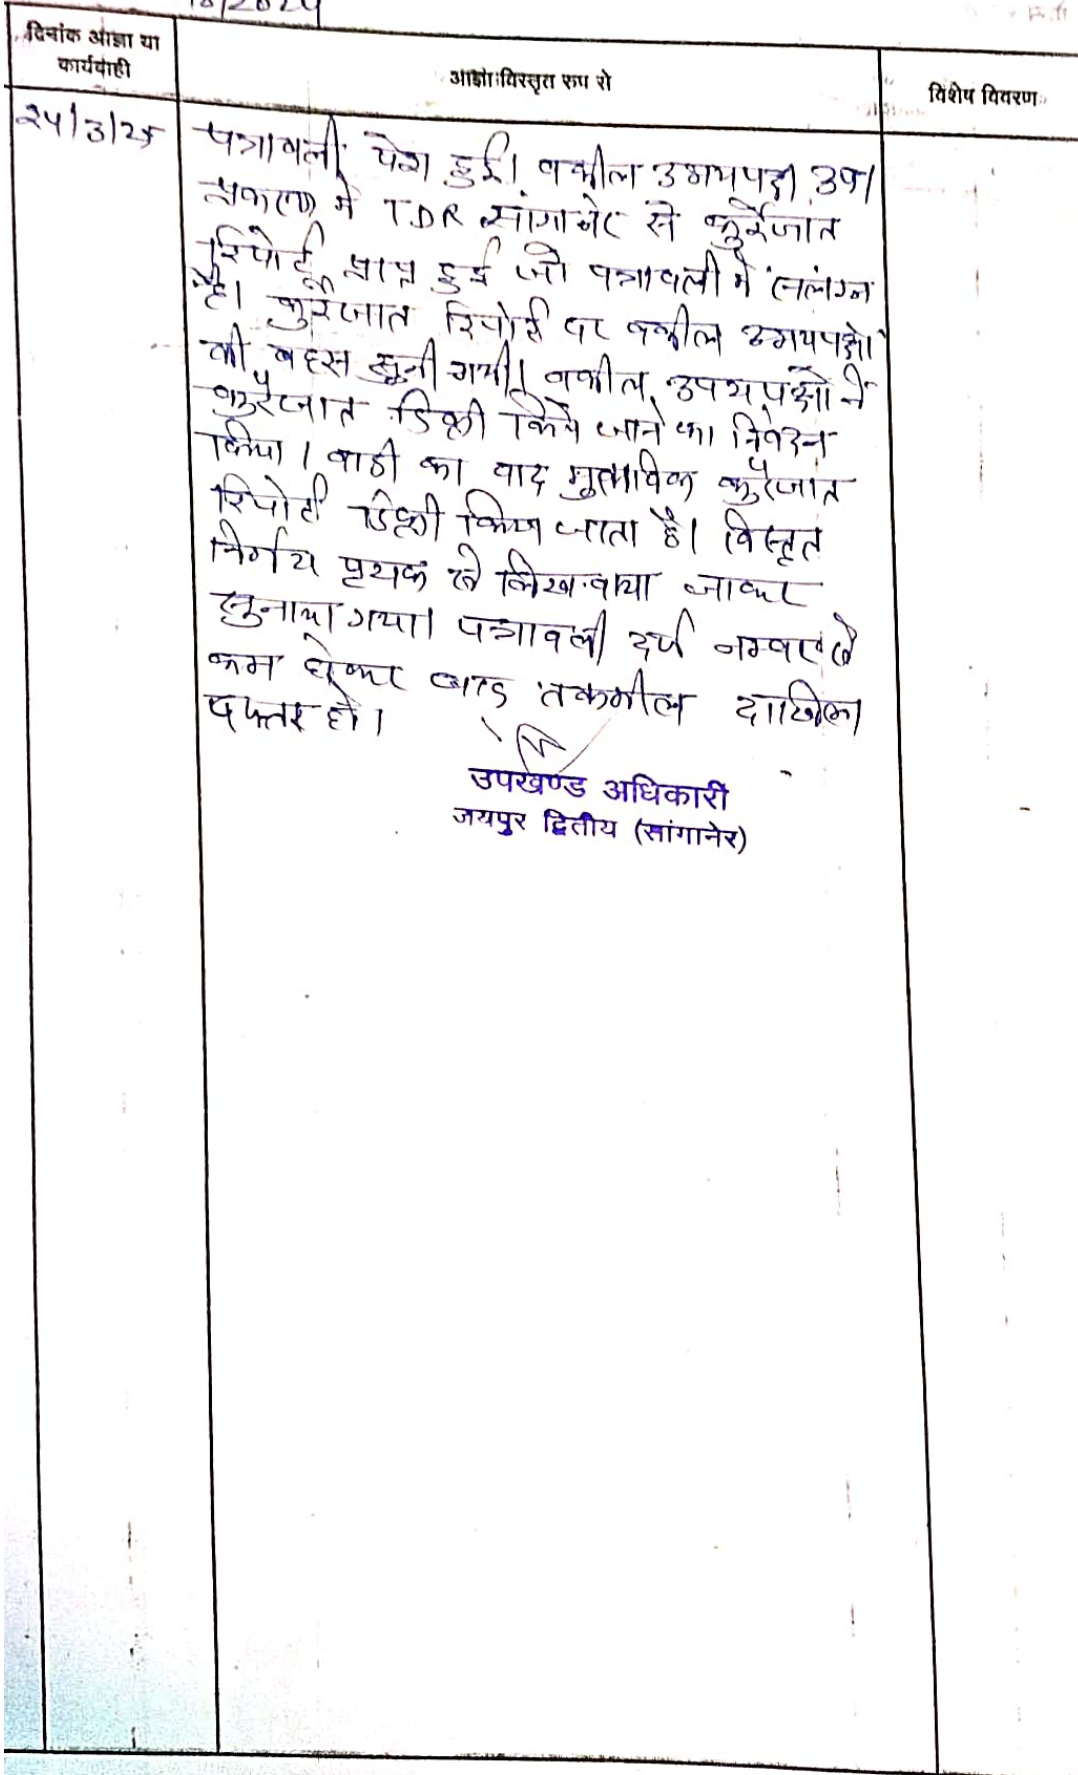 10/2024
दिनांक आज्ञा या
कार्यवाही
आज्ञा विस्तृत रुप से
विशेष विवरण
24/3/25
पत्रावली पेश हुई। वकील उभयपक्ष उप।
प्रकरण में TDR सांगानेर से कुर्रेजात
रिपोर्ट प्राप्त हुई जो पत्रावली में संलग्न
है। कुर्रेजात रिपोर्ट पर वकील उभयपक्षो
की बहस सुनी गयी। वकील उभयपक्षो ने
कुर्रेजात डिक्री किये जाने का निवेदन
किया। वादी का वाद मुताबिक कुर्रेजात
रिपोर्ट डिक्री किया जाता है। विस्तृत
निर्णय पृथक से लिखवाया जाकर
सुनाया गया। पत्रावली दर्ज नम्बर से
कम होकर बाद तकमील दाखिल
दफ्तर हो।
उपखण्ड अधिकारी
जयपुर द्वितीय (सांगानेर)